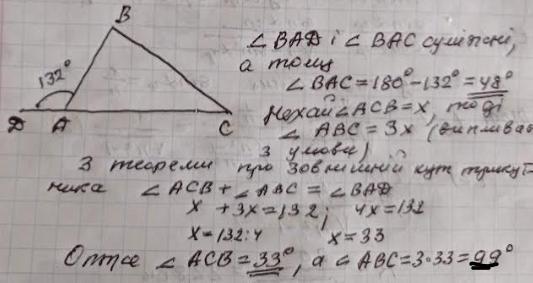 B
132°
D A C
∠BAD і ∠BAC суміжні,
а тому
∠BAC=180°-132°=48°
Нехай ∠ACB=x, тоді
∠ABC=3x (випливає
з умови)
З теореми про зовнішній кут трикут-
ника ∠ACB+∠ABC=∠BAD
x+3x=132; 4x=132
x=132:4 x=33
Отже ∠ACB=33°, а ∠ABC=3·33=99°